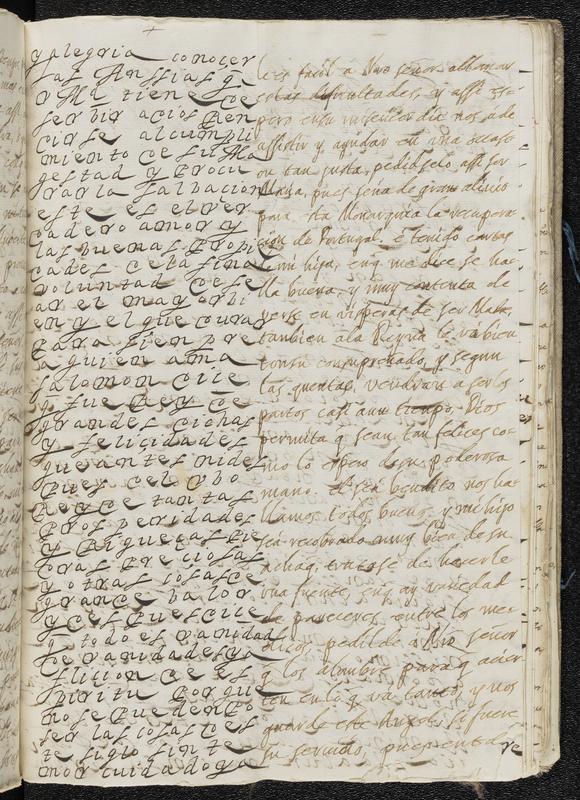 y alegria conocer
las Anssias q̄
V Mᵈ tiene de
ser vir a dios Ren
dirse al cumpli
miento de su Ma
gestad y Procu
rar la salbacion
este es el ver
dadero amor y
las buenas Propie
dades de la fina
voluntad dese
ar el mayor bi
en y el que dura
Para siem pre
a quien ama
Salomon dice
q̄ fue Rey de
grandes dichas
y felicidades
que antes ni des
Pues del vbo
Rey de tantas
Prosperidades
y Riqueças Pie
dras Preciosas
y otras cosas de
grande balor
y des Pues dice
q todo es vanidad
de vanidades y a
fliccion de es
Spiritu Por que
no se Pueden Po
ser las cosas de es
te siglo sin te
mor cuidado y a
le es facil a Nro señor allanar
estas dificultades, y assi es-
pero en su misericordia nos a de
assistir y ayudar en una ocasi-
on tan justa, pedidselo assi sor
Maria, pues sera de gran alivio
para esta Monarquia la recupera-
cion de Portugal. e tenido cartas
de mi hija, en q me dice se ha-
lla buena, y muy contenta de
verse en visperas de ser Madre,
tambien a la Reyna le va bien
con su preñado, y segun
las quentas, vendran a ser los
partos casi a un tiempo. Dios
permita q sean tan felices co-
mo lo espero de su poderosa
mano. El sea bendito nos ha-
llamos todos buenos, y mi hijo
se a recobrado muy bien de su
achaq, tratase de hacerle
una fuente, en q ay variedad
de pareceres entre los me-
dicos, pedilde a Nro señor
q los alumbre para q acier-
ten en lo q va tanto, y nos
guarde este Angel, si fuere
su servido, pues en toda
re